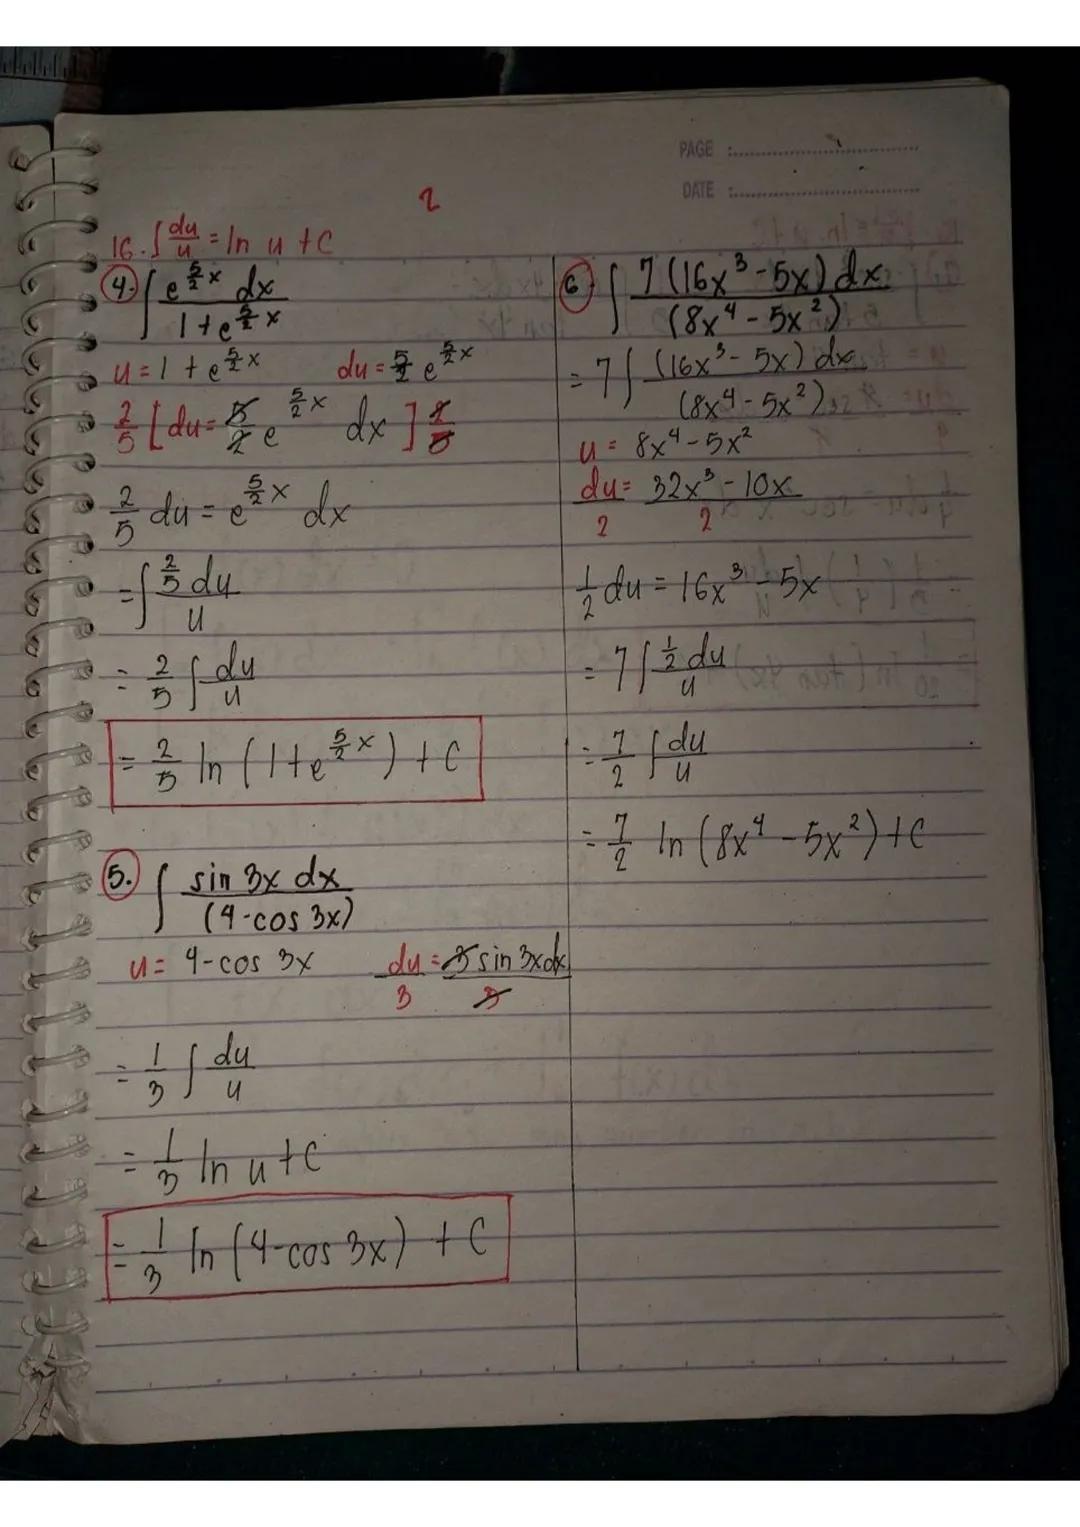 PAGE :
DATE :
2
16. ∫ du/u = ln u + C
4. ∫ e^(5/2 x) dx / 1 + e^(5/2 x)
u = 1 + e^(5/2 x) du = 5/2 e^(5/2 x)
2/5 [ du = 5/2 e^(5/2 x) dx ] 2/5
2/5 du = e^(5/2 x) dx
= ∫ 2/5 du / u
= 2/5 ∫ du/u
= 2/5 ln (1 + e^(5/2 x)) + C
5. ∫ sin 3x dx / (4-cos 3x)
u = 4-cos 3x du/3 = 3 sin 3x dx / 3
= 1/3 ∫ du/u
= 1/3 ln u + C
= 1/3 ln (4-cos 3x) + C
6. ∫ 7 (16x³ - 5x) dx / (8x⁴ - 5x²)
= 7 ∫ (16x³ - 5x) dx / (8x⁴ - 5x²)
u = 8x⁴ - 5x²
du/2 = 32x³ - 10x / 2
1/2 du = 16x³ - 5x
= 7 ∫ 1/2 du / u
= 7/2 ∫ du/u
= 7/2 ln (8x⁴ - 5x²) + C